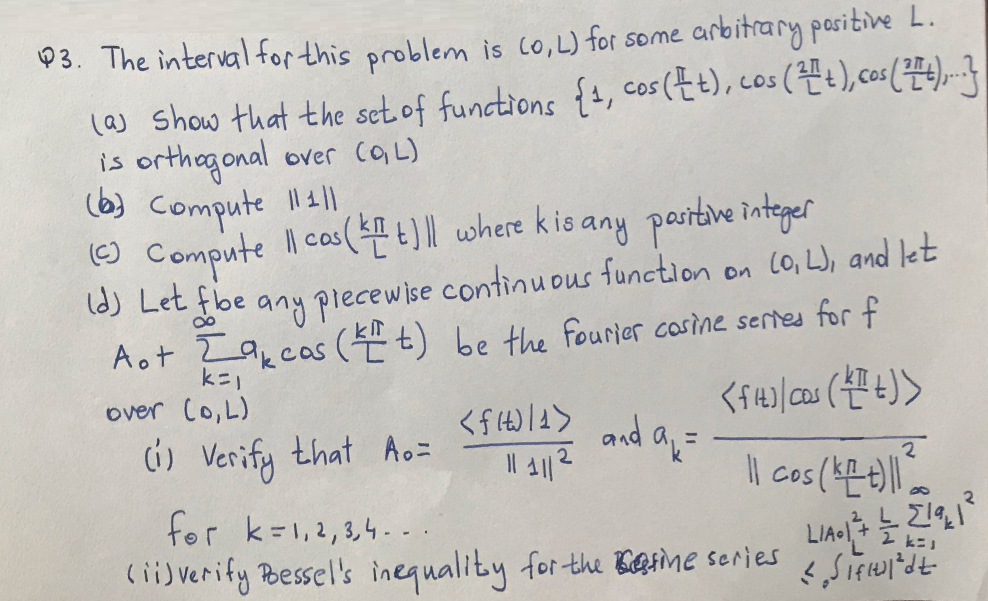 Q3. The interval for this problem is (0,L) for some arbitrary positive L.
(a) Show that the set of functions {1, cos(π/L t), cos(2π/L t), cos(3π/L t),...}
is orthogonal over (0,L)
(b) Compute ||1||
(c) Compute ||cos(kπ/L t)|| where k is any positive integer
(d) Let f be any piecewise continuous function on (0,L), and let
A₀+ ∑_{k=1}^{∞} aₖ cos(kπ/L t) be the Fourier cosine series for f
over (0,L)
(i) Verify that A₀= <f(t)|1> / ||1||² and aₖ= <f(t)|cos(kπ/L t)> / ||cos(kπ/L t)||²
for k=1,2,3,4...
(ii) verify Bessel's inequality for the cosine series L|A₀|²+ L/2 ∑_{k=1}^{∞} |aₖ|²
≤ ₀∫ᴸ |f(t)|² dt